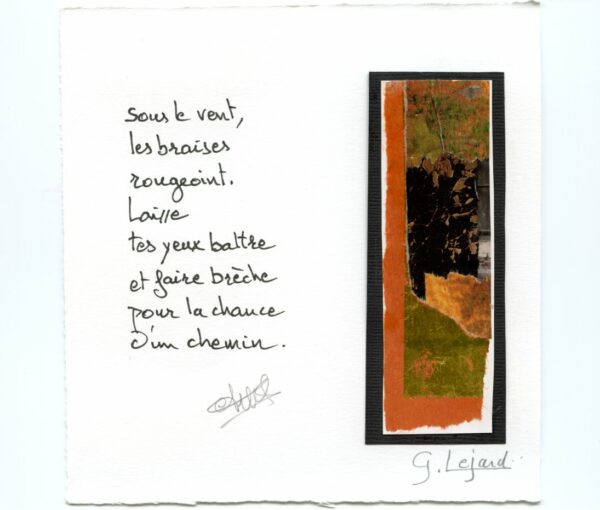 sous le vent,
les braises
rougeoint.
Laisse
tes yeux battre
et faire brèche
pour la chance
d'un chemin.
G. Lejard